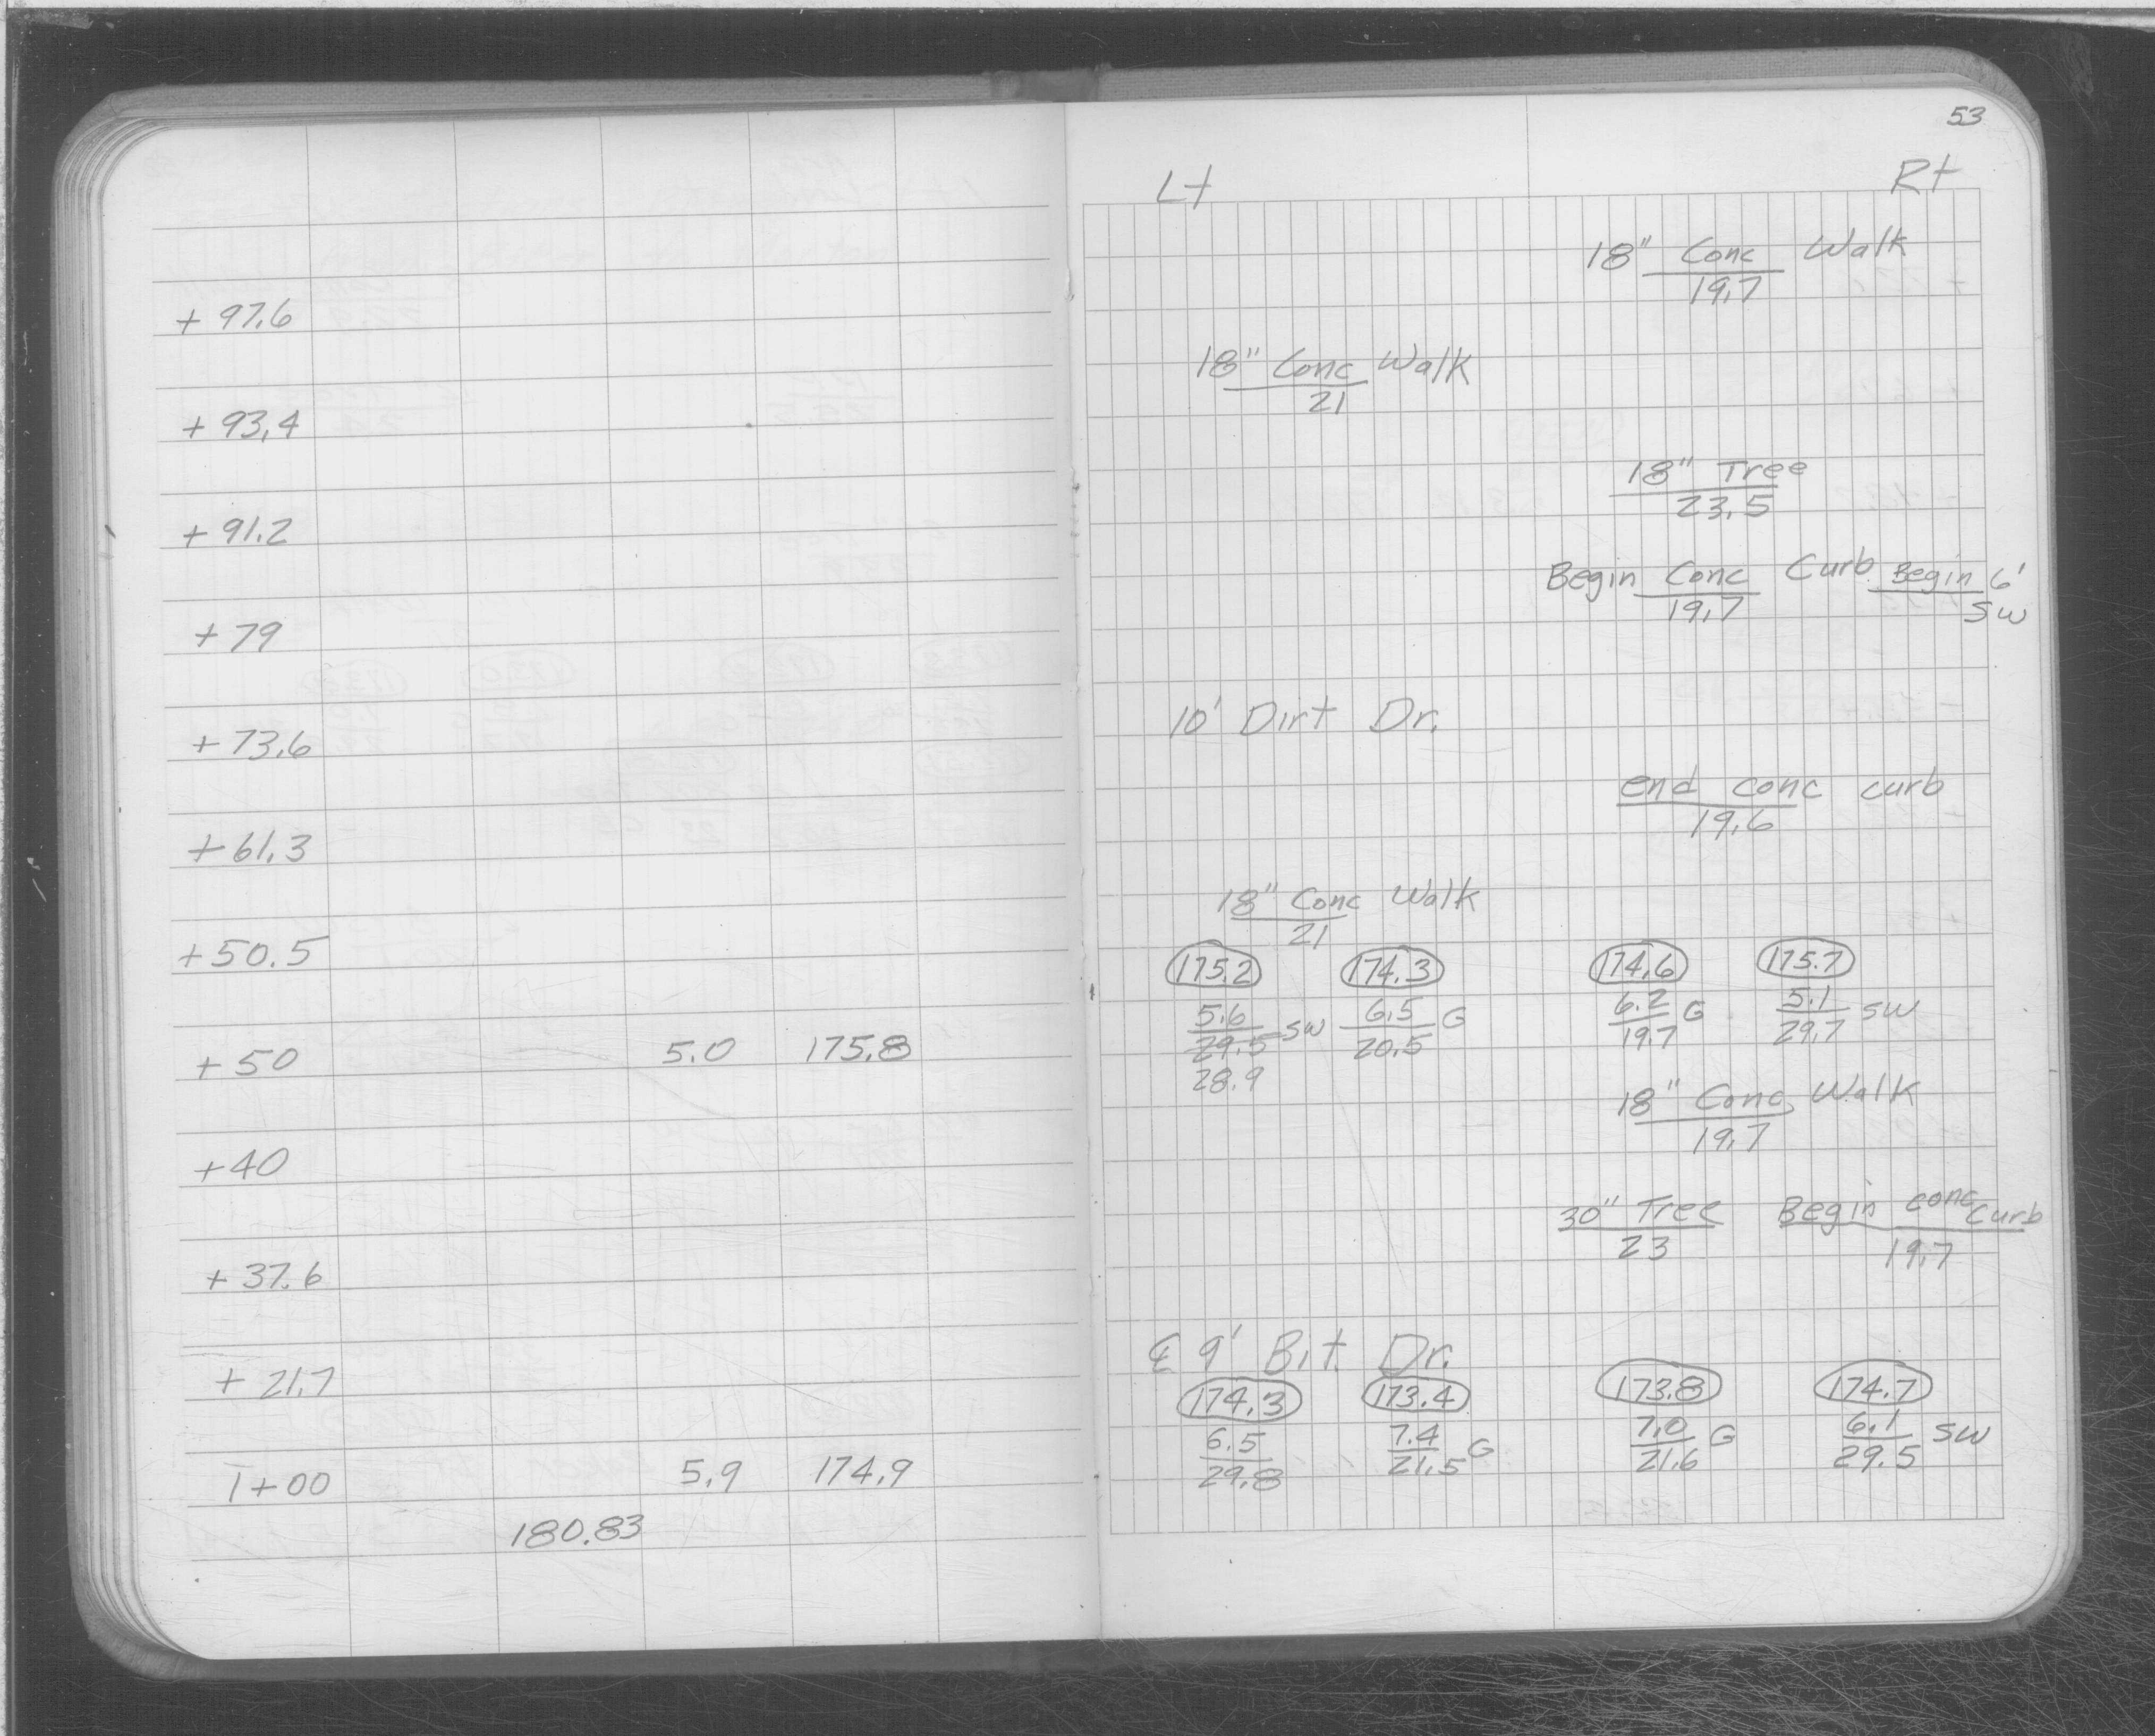 53
Lt Rt
18" Conc Walk
19.7
+ 97.6
18" Conc Walk
21
+ 93.4
18" Tree
23.5
+ 91.2
Begin Conc Curb Begin 6'
19.7 SW
+ 79
10' Dirt Dr.
+ 73.6
end conc curb
19.6
+ 61.3
18" Conc Walk
21
+ 50.5
175.2 174.3 174.6 175.7
5.6 SW 6.5 G 6.2 G 5.1 SW
+ 50 5.0 175.8 29.5 20.5 19.7 29.7
28.9
18" Conc Walk
19.7
+ 40
30" Tree Begin conc curb
23 19.7
+ 37.6
℄ 9' Bit. Dr.
+ 21.7
174.3 173.4 173.8 174.7
6.5 7.4 G 7.0 G 6.1 SW
1+00 5.9 174.9 29.8 21.5 21.6 29.5
180.83